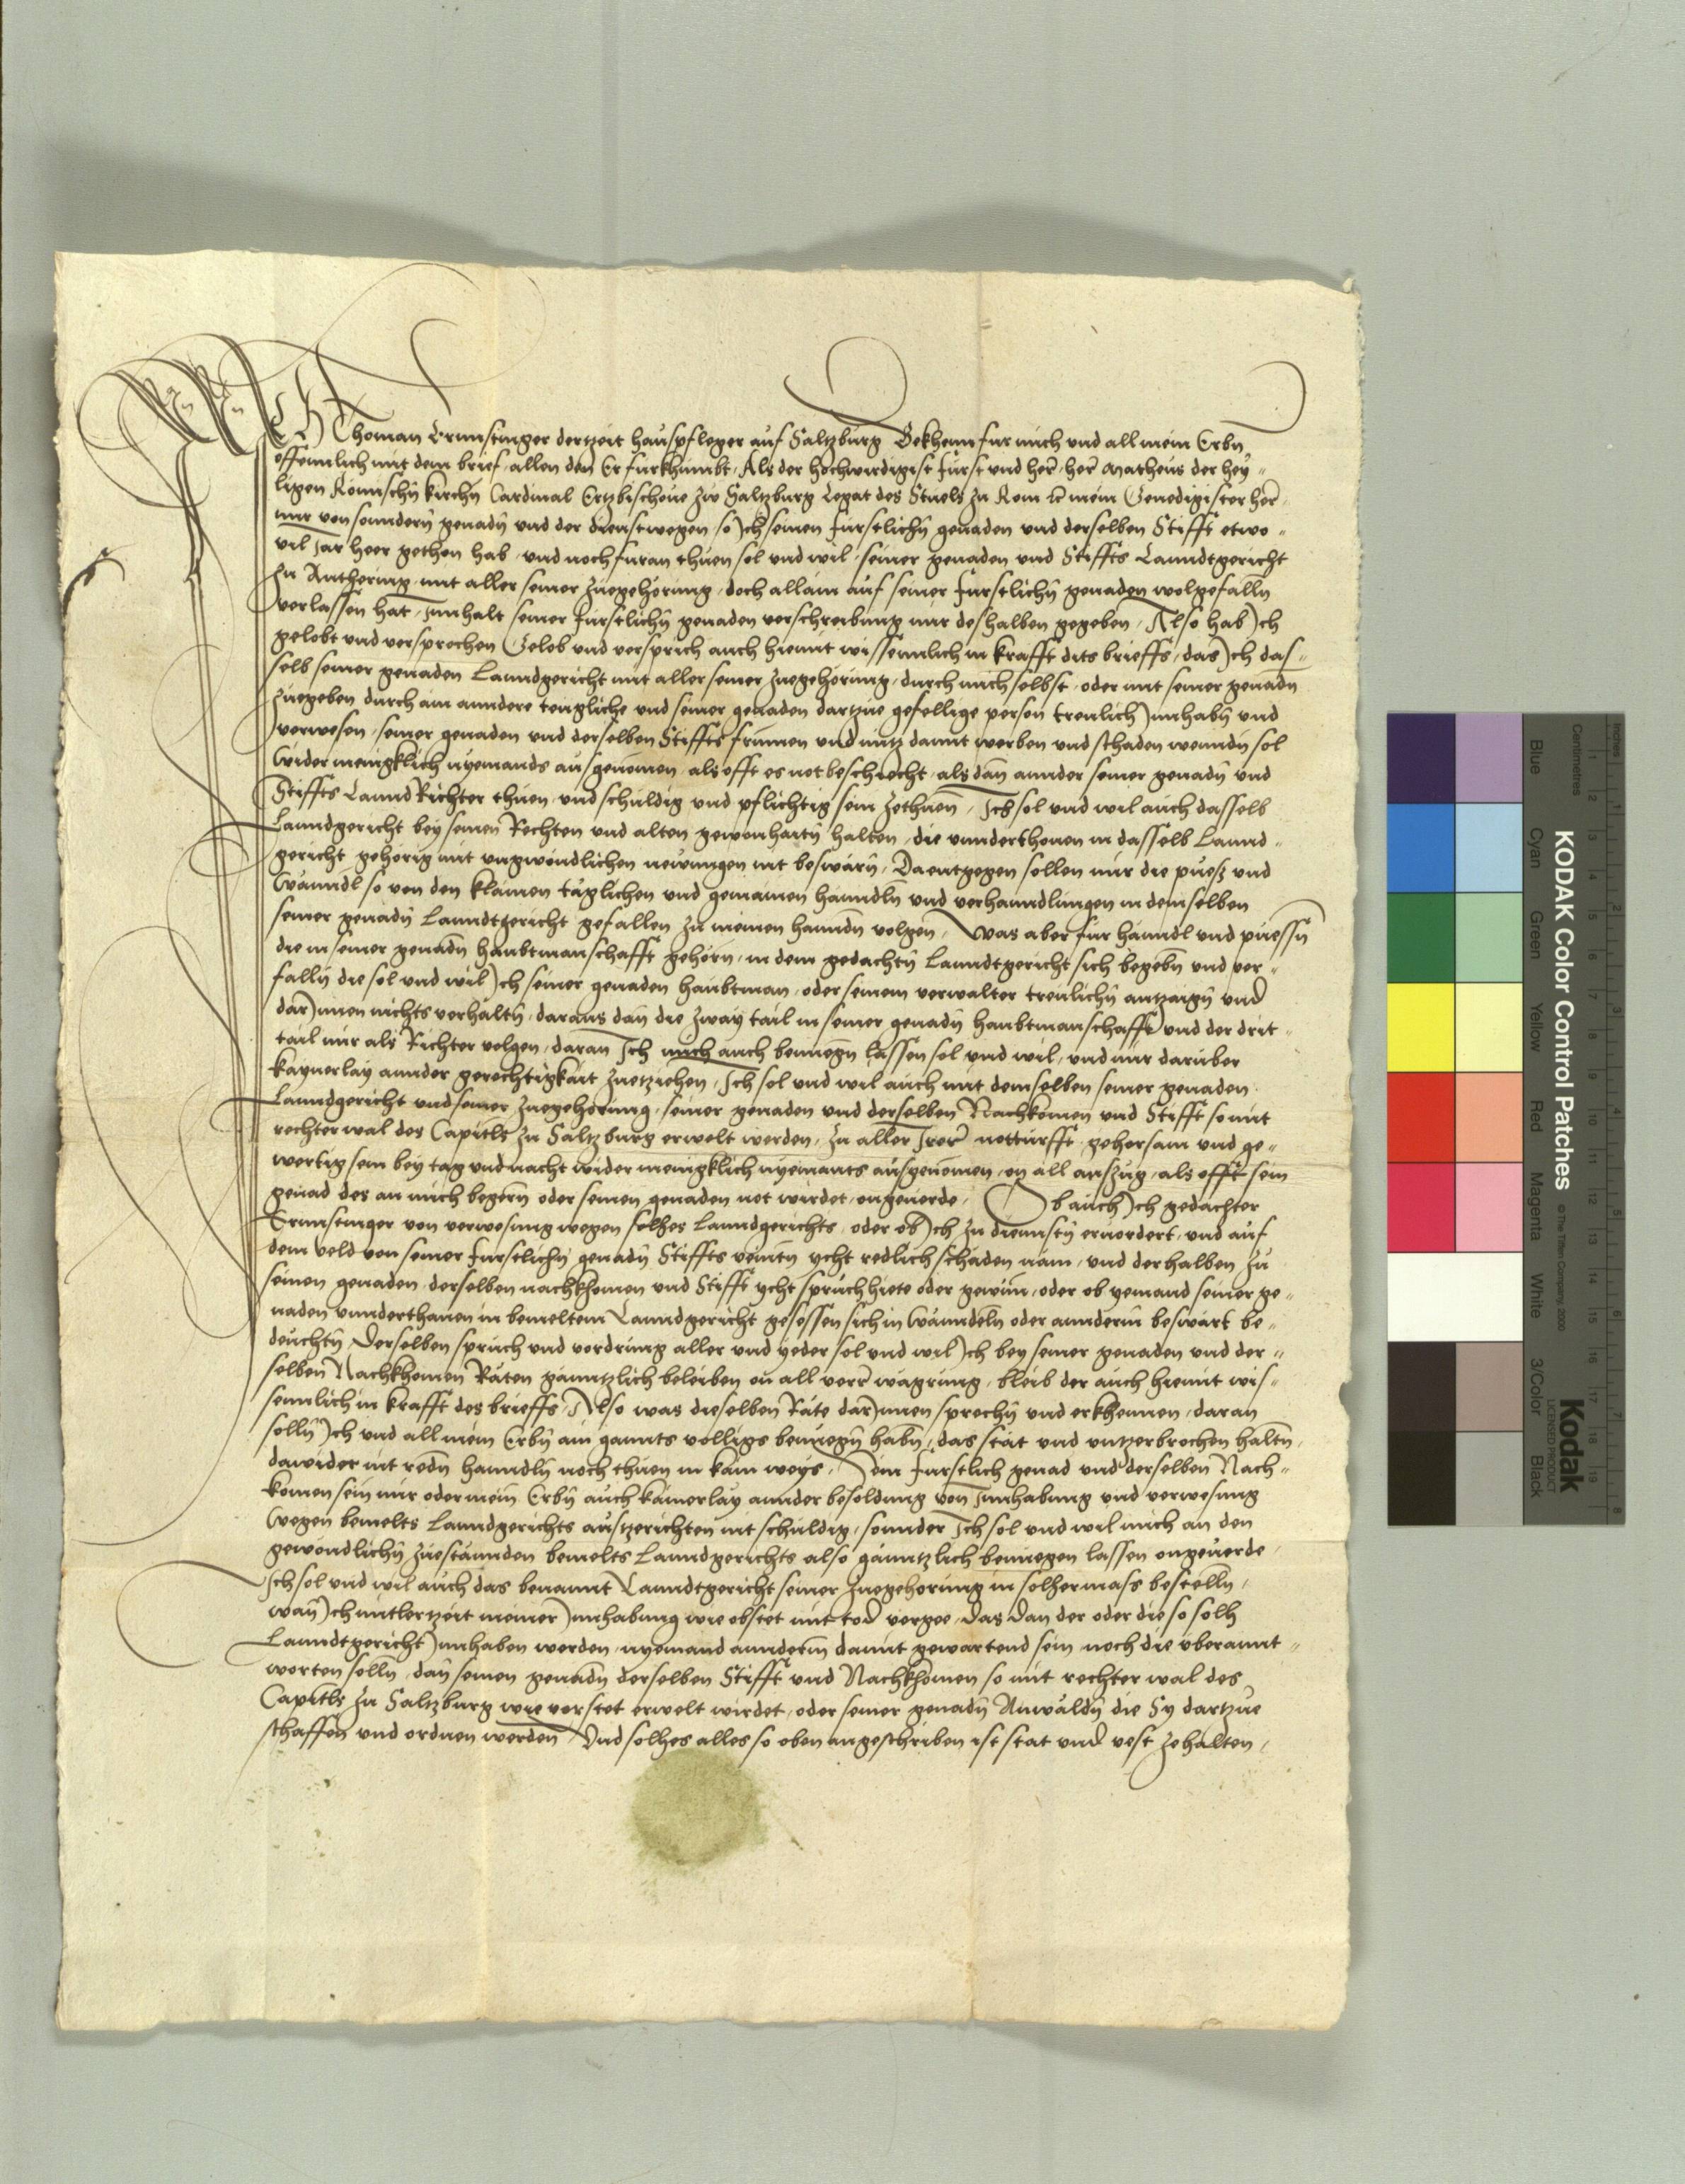 ICH Thoman Trunstinger dertzeit hauspfleger auf Saltzburg Bekhenn fur mich und all mein Erbn
offennlich mit dem brief allen den Er furkhumbt, Als der hochwirdigist Furst und her, her Matheus der hey-
ligen Romischn kirchn Cardinal Ertzbischove zw Saltzburg Legat des Stuels zu Rom etc mein Genedigister her
mir von sonndern genadn und der dienst wegen, so Ich seinen furstlichn genaden und derselben Stifft etwo-
vil Jar heer gethon hab, und noch furan thuen sol und wil, seiner genaden und Stiffts Lanndtgericht
zu Anthering, mit aller seiner zuegehorung, doch allain auf seiner furstlichn genaden wolgefalln
verlassen hat, Innhalt seiner furstlichn genaden verschreibung mir deshalben gegeben, Also hab Ich
gelobt und versprochen Gelob und versprich auch hiemit wissenntlich in krafft dits brieffs, das Ich das-
selb seiner genaden Lanndgericht mit aller seiner zuegehorung, durch mich selbst, oder mit seiner genadn
zuegeben durch ain anndere teugliche und seiner genaden dartzue gefellige person treulich Innhabn und
verwesen, seiner genaden und derselben Stiffts frumen und nutz damit werben und schaden wenndn sol
Wider menigklich nyemands ausgenomen, als offt es not beschiecht, als dan annder seiner genadn und
Stiffts LanndRichter thuen, und schuldig und pflichtig sein zethuen, Ich sol und wil auch dasselb
Lanndgericht bey seinen Rechten und alten gewonhaitn halten, die unnderthonen in dasselb Lannd-
gericht gehorig mit ungwondlichen newungen nit beswarn, Daentgegen sollen mir die puess und
Wanndl so von den klainen taglichen und gemainen hanndln und verhanndlungen in demselben
seiner genadn Lanndtgericht gefallen zu meinen hanndn volgen, Was aber fur hanndl und puessn
die in seiner genadn haubtmanschafft gehorn, in dem gedachtn Lanndtgericht sich begebn und ver-
falln die sol und wil Ich seiner genaden haubtman, oder seinem verwalter treulichn antzaign und
darInnen nichts verhaltn, daraus dan die zway tail in seiner genadn haubtmanschafft und der drit-
tail mir als Richter volgen, daran Ich mich auch benuegn lassen sol und wil, und mir daruber
kaynerlay annder gerechtigkait zuetziehen, Ich sol und wil auch mit demselben seiner genaden
Lanndgericht und seiner zuegehorung, seiner genaden und derselben Nachkomen und Stifft so mit
rechter wal des Capitls zu Saltzburg erwelt werden, zu aller Irer notturfft gehorsam und ge-
wertig sein bey tag und nacht wider menigklich nyemants ausgenomen, on all auszug, als offt sein
genad des an mich begern oder seinen genaden not wirdet, ongeverde, Ob auch Ich gedachter
Trunstinger von verwesung wegen solhes Lanndgerichts, oder ob Ich zu diennstn ervordert, und auf
dem veld von seiner furstlichn genadn Stiffts veintn ycht redlich schaden nam, und derhalben zu
seinen genaden, derselben nachkhomen und Stifft ycht spruch hiete oder gewun, oder ob yemand seiner ge-
naden unnderthanen in bemeltem Lanndgericht gesessen sich in Wanndeln oder annderm beswart be-
deuchtn Derselben spruch und vordrung aller und yeder sol und wil Ich bey seiner genaden und der-
selben Nachkhomen Raten ganntzlich beleiben on all verr wagrung, bleib der auch hiemit wis-
senntlich in krafft des brieffs, Also was dieselben Rate darInnen sprechn und erkhennen, daran
solln Ich und all mein Erbn ain gannts volligs benuegn habn, das stat und untzerbrochen haltn,
dawider nit redn hanndln noch thuen in kain weys, Sein furstlich genad und derselben Nach-
komen sein mir oder mein Erbn auch kainerlay annder besoldung von Innhabung und verwesung
Wegen bemelts Lanndgerichts austzerichten nit schuldig, sonnder Ich sol und wil mich an den
gewondlichn zuestannden bemelts Lanndgerichts also ganntzlich benuegen lassen ongeverde,
Ich sol und wil auch das benannt Lanndtgericht seiner zuegehorung in solhermass bestelln,
wan Ich mitlertzeit meiner Innhabung wie obstet mit tod vergee, Das dan der oder die so solh
Lanndtgericht Innhaben werden, nyemand annderm damit gewartend sein, noch die uberannt-
worten solln, dan seinen genadn derselben Stifft und Nachkhomen so mit rechter wal des
Capitls zu Saltzburg wie vorstet erwelt wirdet, oder seiner genadn Anwaldn die Sy dartzue
schaffen und ordnen werden, Und solhes alles so oben angeschriben ist stat und vest zehalten,
KODAK Color Control Patches
© The Tiffen Company, 2000
Kodak
LICENSED PRODUCT
Inches
Centimetres
Blue Cyan Green Yellow Red Magenta White 3/Color Black